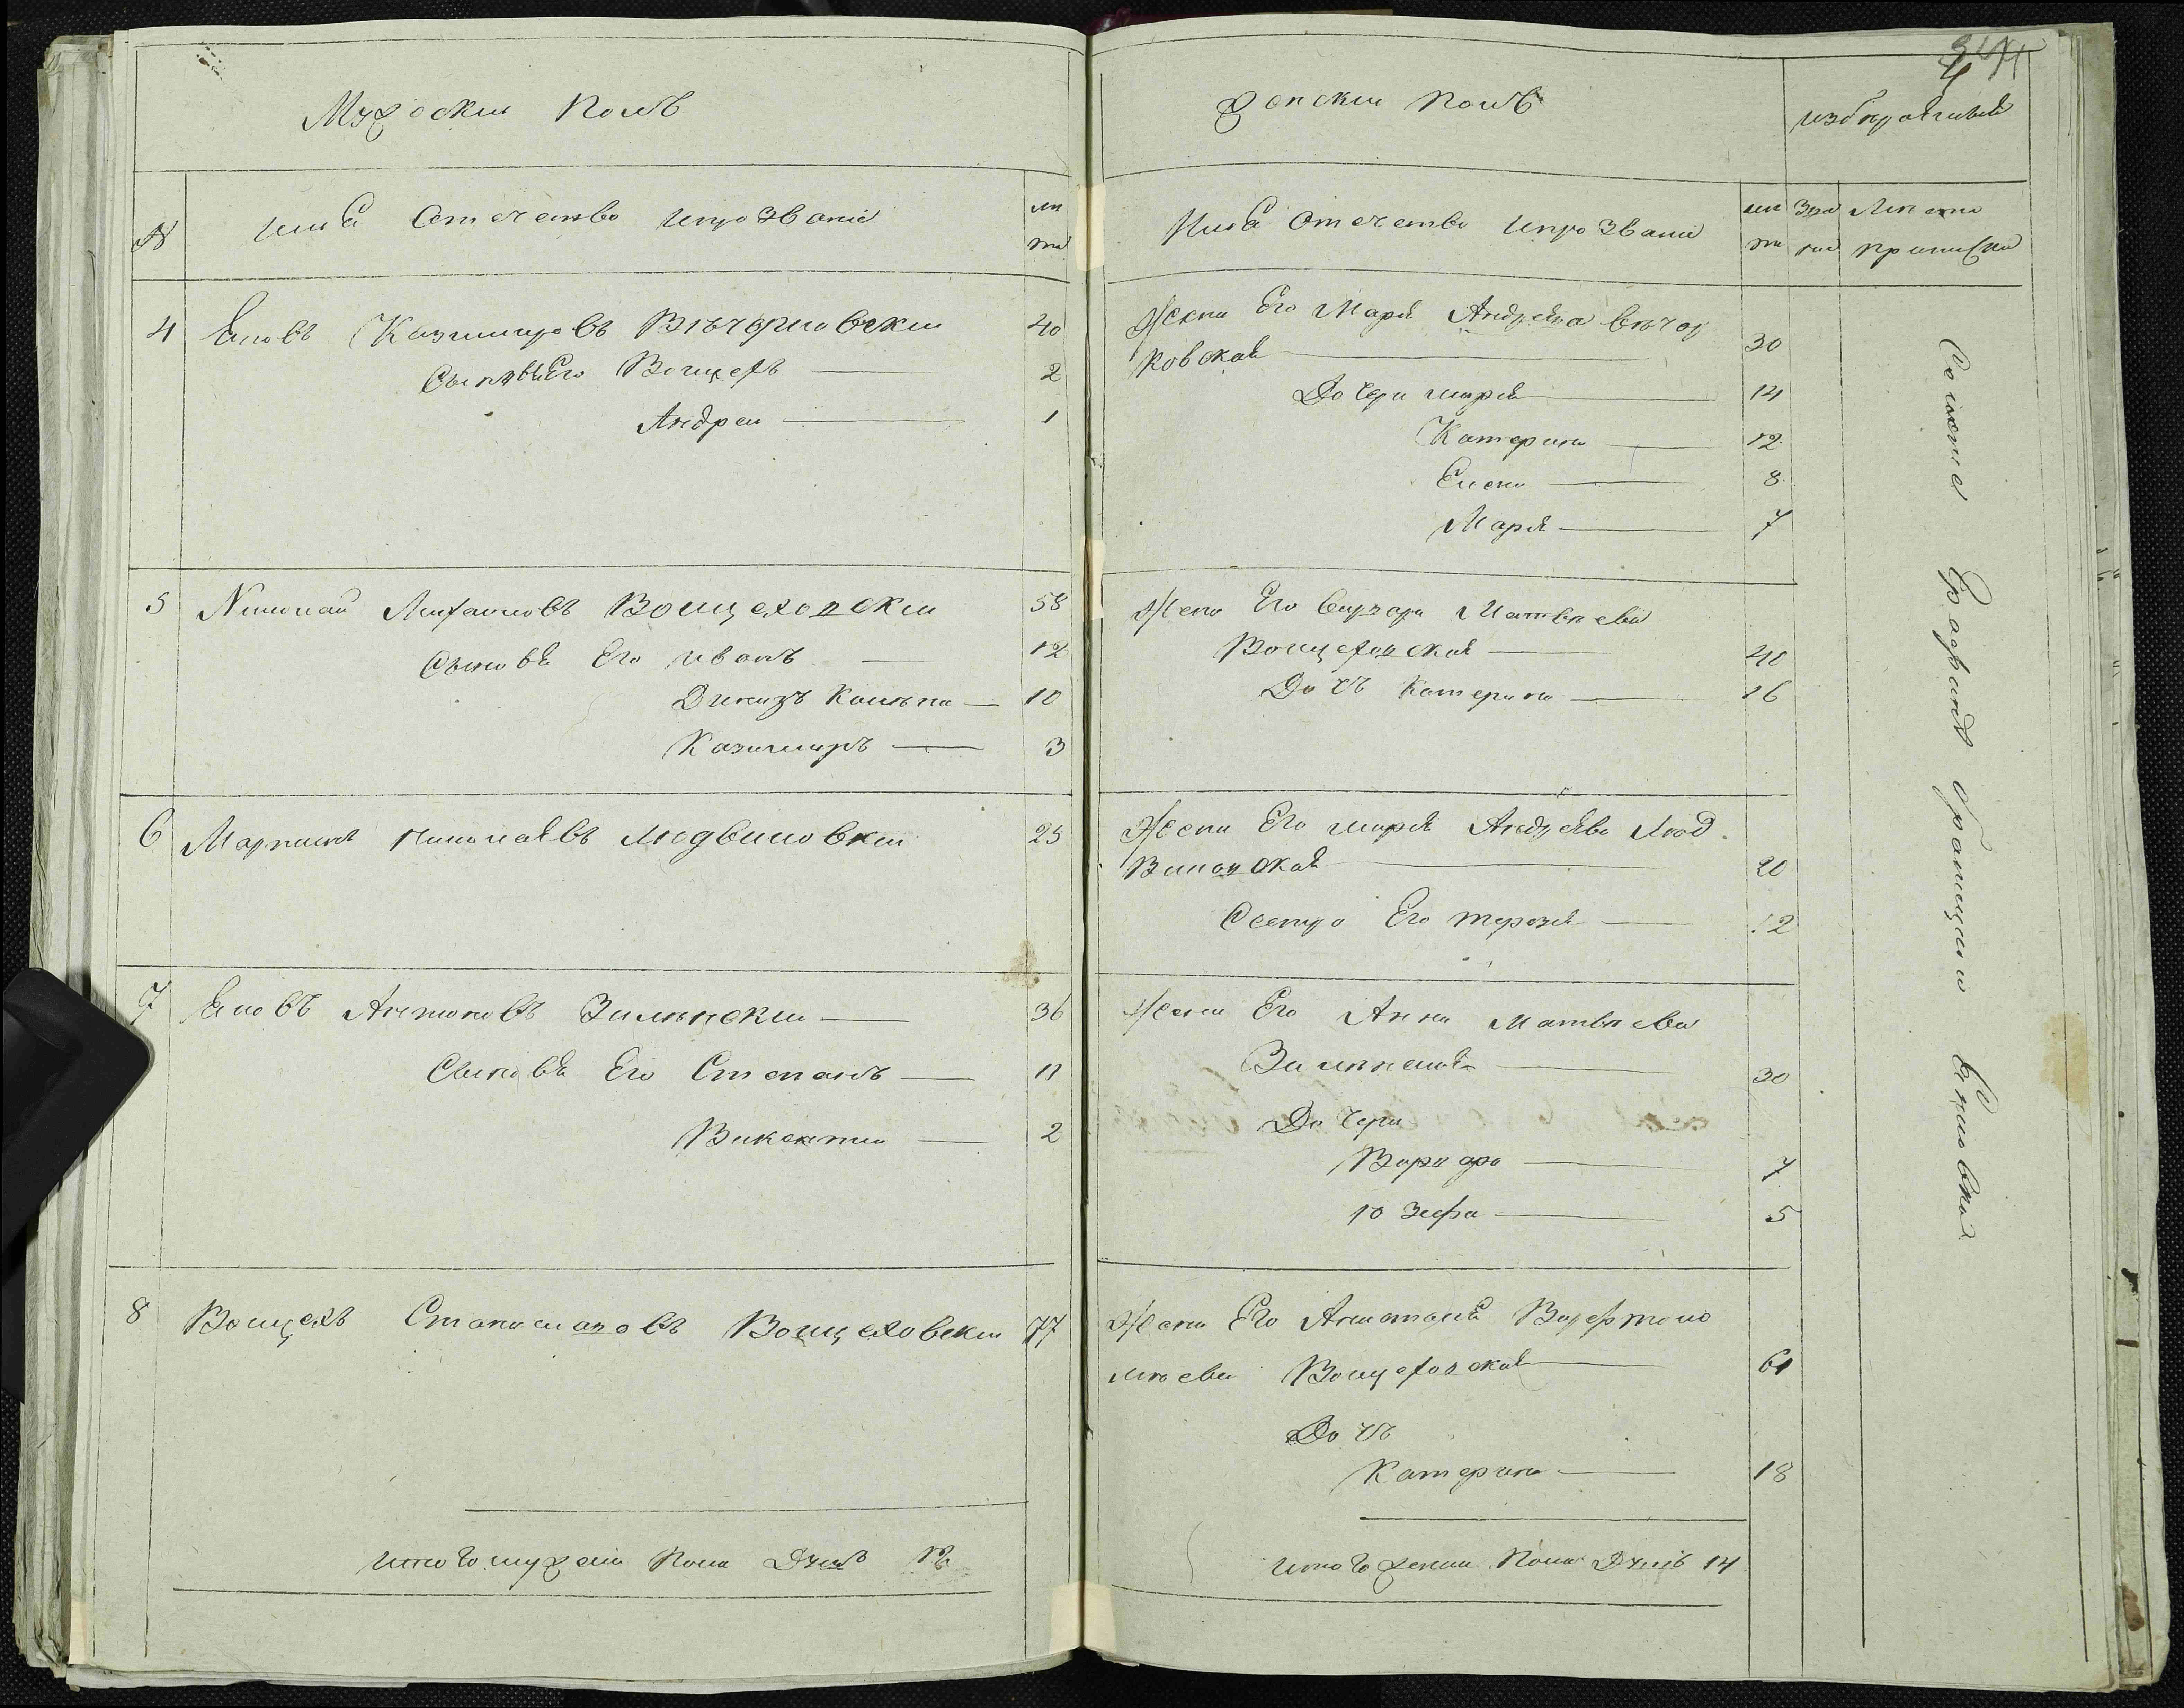 Мужескии полъ
№ Имя Отечество ипрозвание лета
4 Яковъ Казимировъ Вѣчорковскии 40
Сыновья Его Воицехъ 2
Андреи 1
5 Николаи Михаиловъ Воицеховскии 58
Сыновья Его иванъ 12
10
Казимиръ 3
6 Мартинъ николаявъ людвиковскии 25
7 Яковъ Антоновъ Зилинскии 36
Сыновья Его Степанъ 11
Викентии 2
8 Воицехъ Станиславовъ Воицеховскии 77
итого мужска пола Душъ 12
женскии полъ
Имя отечество ипрозвание лета
Лист
Жена Его Марья Андреева вѣчор
ковская 30
Дочери марья 14
Катерина 12
Елена 8
Марья 7
Жена Его варвара Матвѣева
Воицеховская 40
Дочь Катерина 16
Жена Его марья Андреява Люд
виковская 20
Сестра Его терезия 12
Жена Его Анна Матвѣева
Зилинская 30
Дочери
Варвара 7
юзефа 5
Жена Его Анастасия Варфоло
мѣева Воицеховская 61
Дочь
Катерина 18
итого женска пола Душъ 14